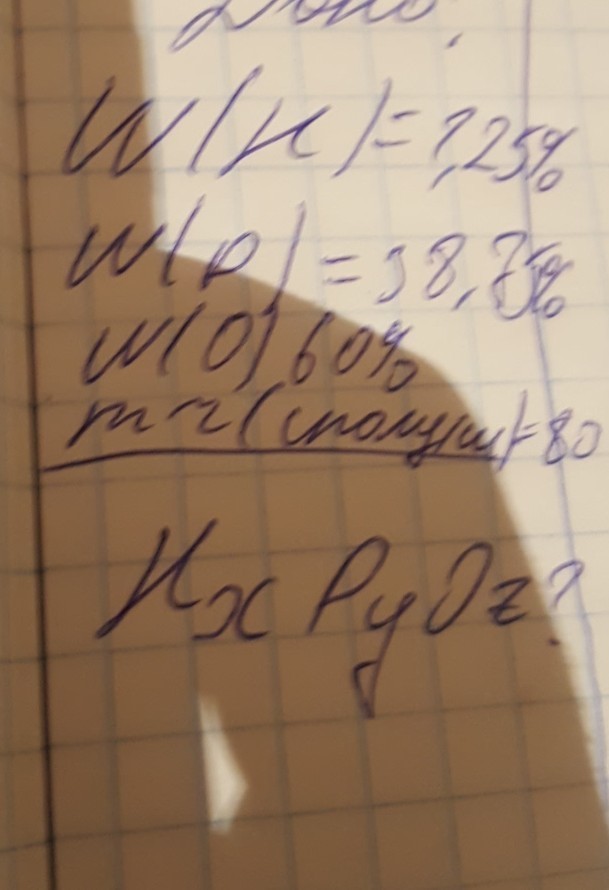 W(H)=1,25%
W(P)=38,75%
W(O) 60%
mr(сполуки)=80
HxPyOz?